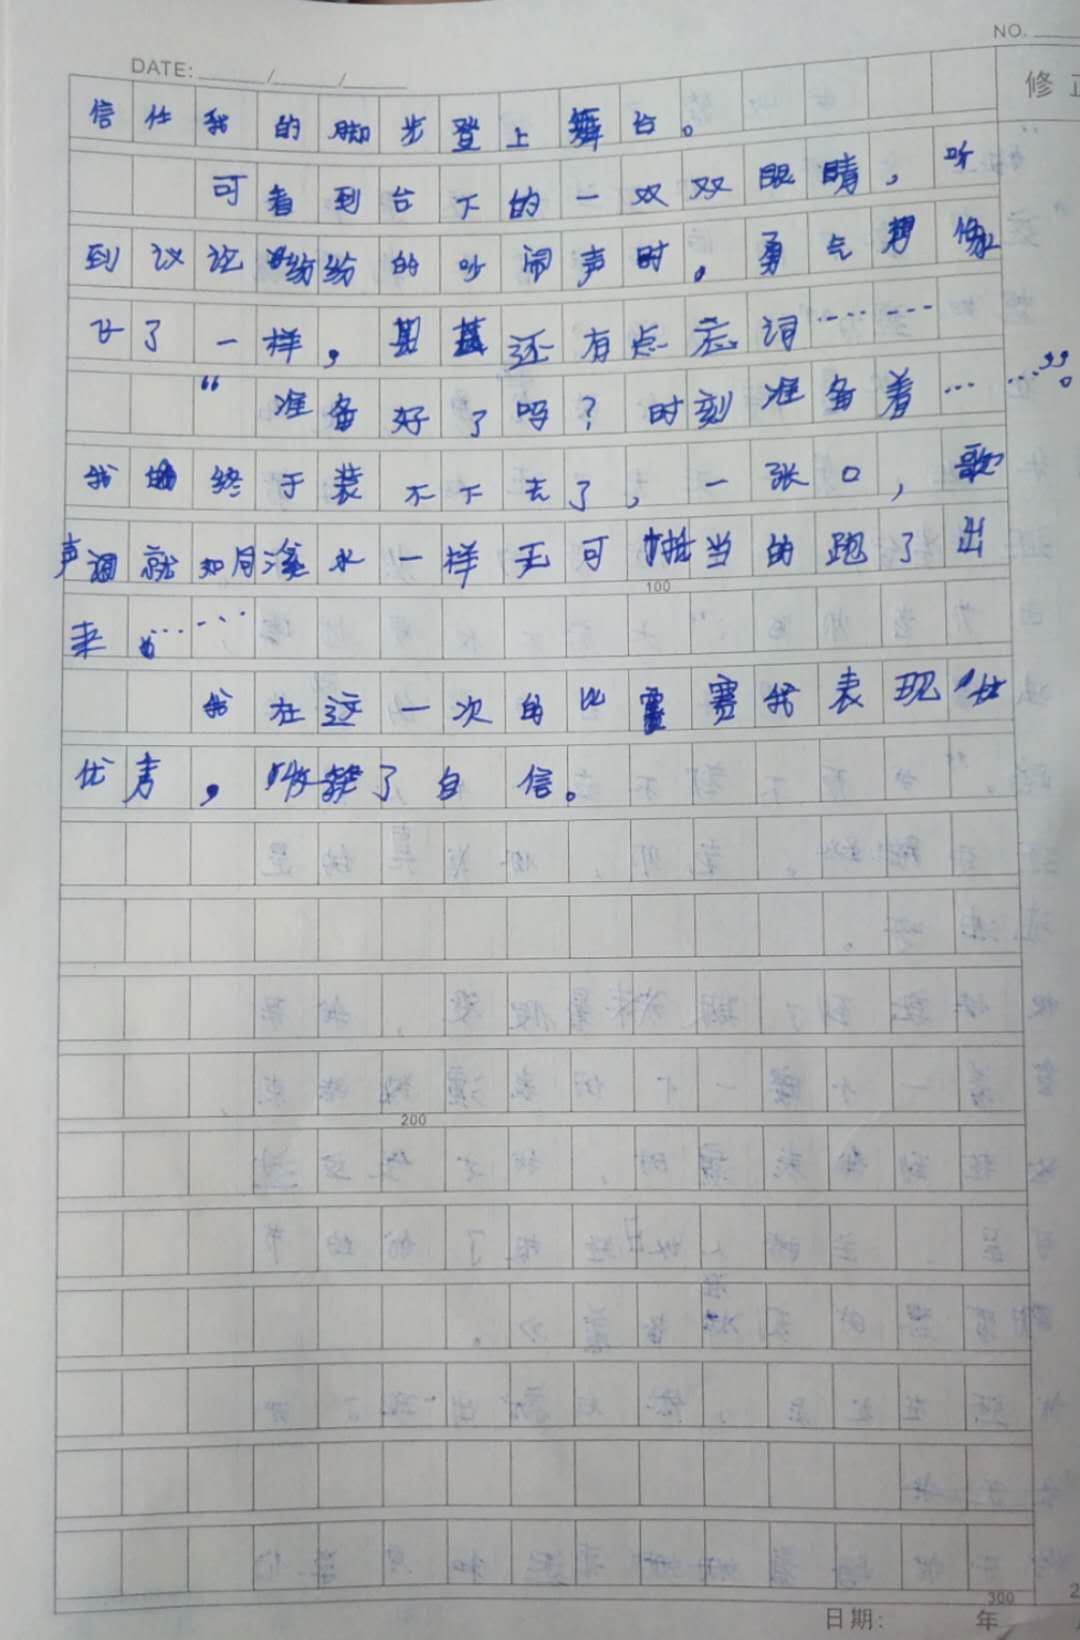 NO.
DATE: / /
修正
信任我的脚步登上舞台。
可看到台下的一双双眼睛，听
到议论纷纷的吵闹声时。勇气想像
飞了一样，甚至还有点忘词……
“准备好了吗？时刻准备着……”。
我终于装不下去了，一张口，歌
声调就如同溪水一样无可抵当的跑了出
来……
我在这一次的比赛我表现
优秀，收获了自信。
100
200
300
日期: 年